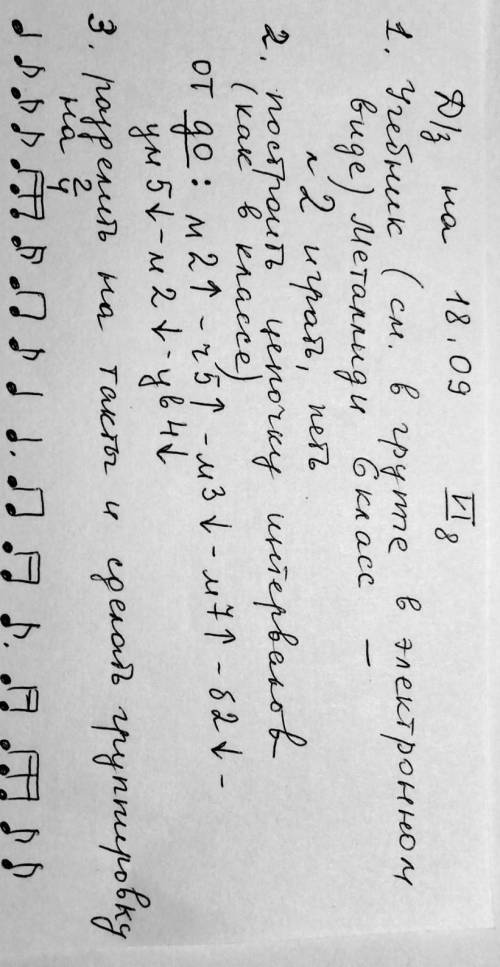 Д/з на 18.09 VI8
1. Учебник (см. в группе в электронном
виде) Металлиди 6 класс –
№2 играть, петь
2. построить цепочку интервалов
(как в классе)
от до: м2↑ - ч5↑ - м3↓ - м7↑ - б2↓ -
ум5↓ - м2↓ - ув4↓
3. разделить на такты и сделать группировку
на 2/4